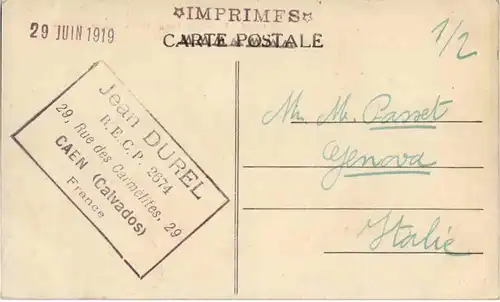 ☆IMPRIMES☆
29 JUIN 1919
CARTE POSTALE
1/2
Jean DUREL
R.E.C.P. 2674
29, Rue des Carmélites, 29
CAEN (Calvados)
France
Mr. Passet
Genova
Italie